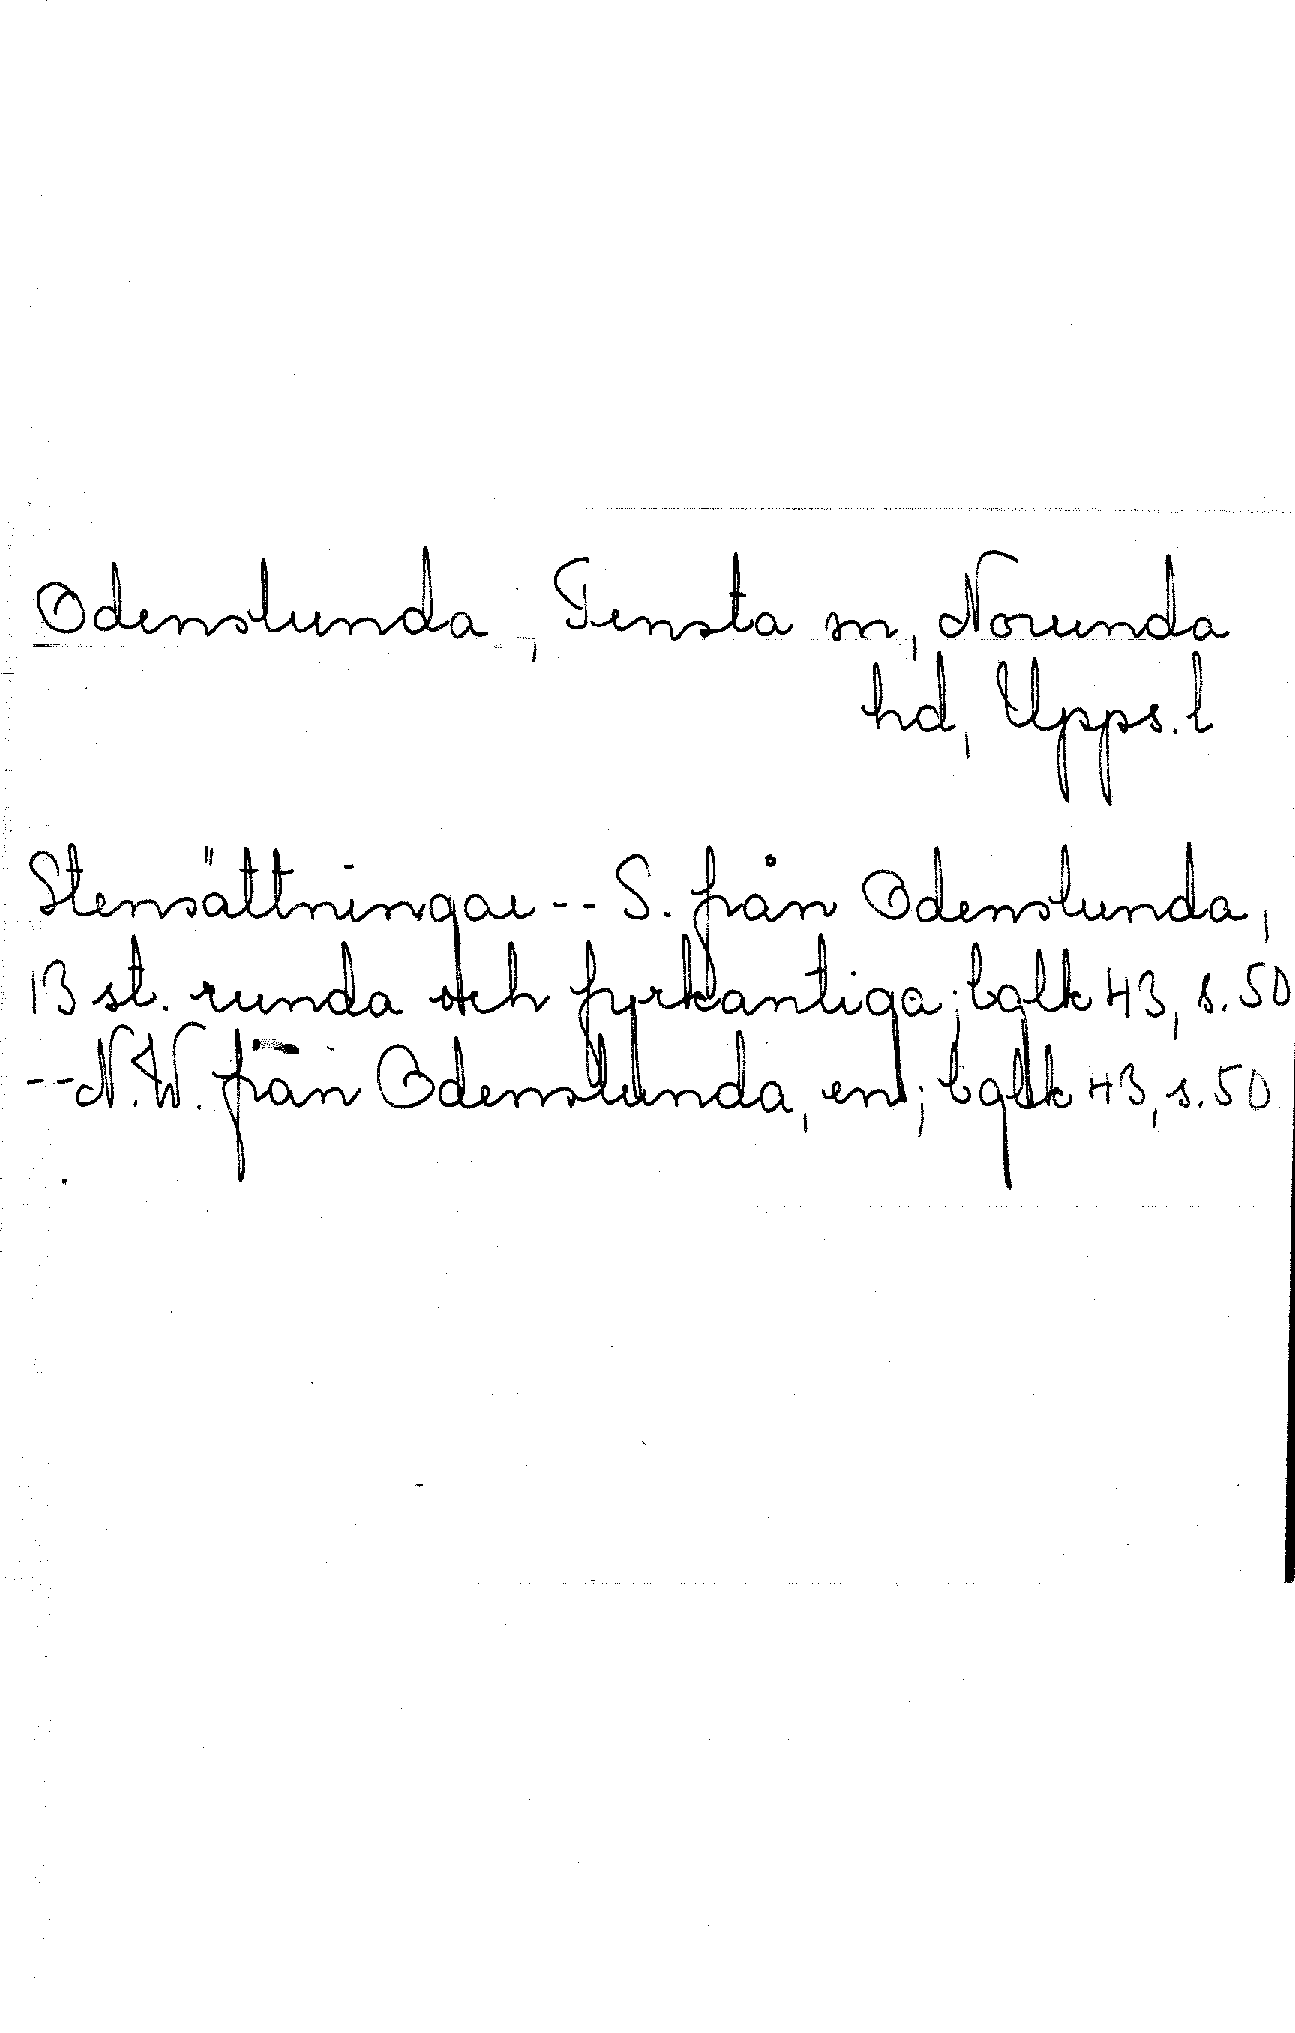 Odenslunda, Tensta sn, Norunda
hd, Upps. l
Stensättningar -- S. från Odenslunda,
13 st. runda och fyrkantiga; bglk 43, s. 50
-- N.W. från Odenslunda, en; bglk 43, s. 50